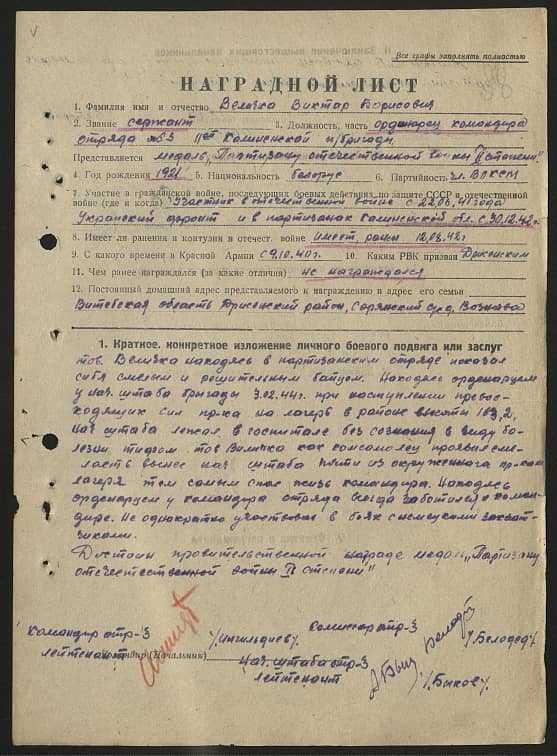 Все графы заполнять полностью
НАГРАДНОЙ ЛИСТ
1. Фамилия имя и отчество Велизка Виктор Борисович
2. Звание сержант 3. Должность, часть ординарец командира
отряда №3 Калиненской п/бригады
Представляется медаль „Партизану отечественной войны II степени"
4. Год рождения 1921 5. Национальность белорус 6. Партийность чл. ВЛКСМ
7. Участие в гражданской войне, последующих боевых действиях по защите СССР и отечественной
войне (где и когда) Участник отечественной войне с 22.06.41 года
Украиский фронт и в партизанах Калининской обл. с 30.12.42г.
8. Имеет ли ранения и контузии в отечест. войне имеет, ранен 12.03.42г
9. С какого времени в Красной Армии с 9.10.40г. 10. Каким РВК призван Дрисенским
11. Чем ранее награждался (за какие отличия) не награждался
12. Постоянный домашний адрес представляемого к награждению и адрес его семьи
Витебская область Дрисенский район, Сарянский с/с д.
1. Краткое, конкретное изложение личного боевого подвига или заслуг
тов. Велизка находясь в партизанском отряде показал
себя смелым и решительным бойцом. Находясь орденарцем
у нач. штаба бригады 3.02.44г. при наступлении превос-
ходящих сил пр-ка на лагерь в районе высоты 183,2,
нач штаба лежал в госпитале без сознания в виду бо-
лезни, тифом тов как комсомолец проявив сме-
лость вынес нач штаба почти из окруженного пр-ком
лагеря тем самым спас жизнь командира. Находясь
орденарцем у командира отряда всегда заботился о коман-
дире. Не однократно участвовал в боях с немецкими захват-
чиками.
Достоин провительственной награде медаль „Партизану
отечественной войны II степени"
Командир отр-3 Комиссар отр-3
/Белодед/
лейтенант Командир (Начальник) Нач. штаба отр-3
лейтенант /Быков/